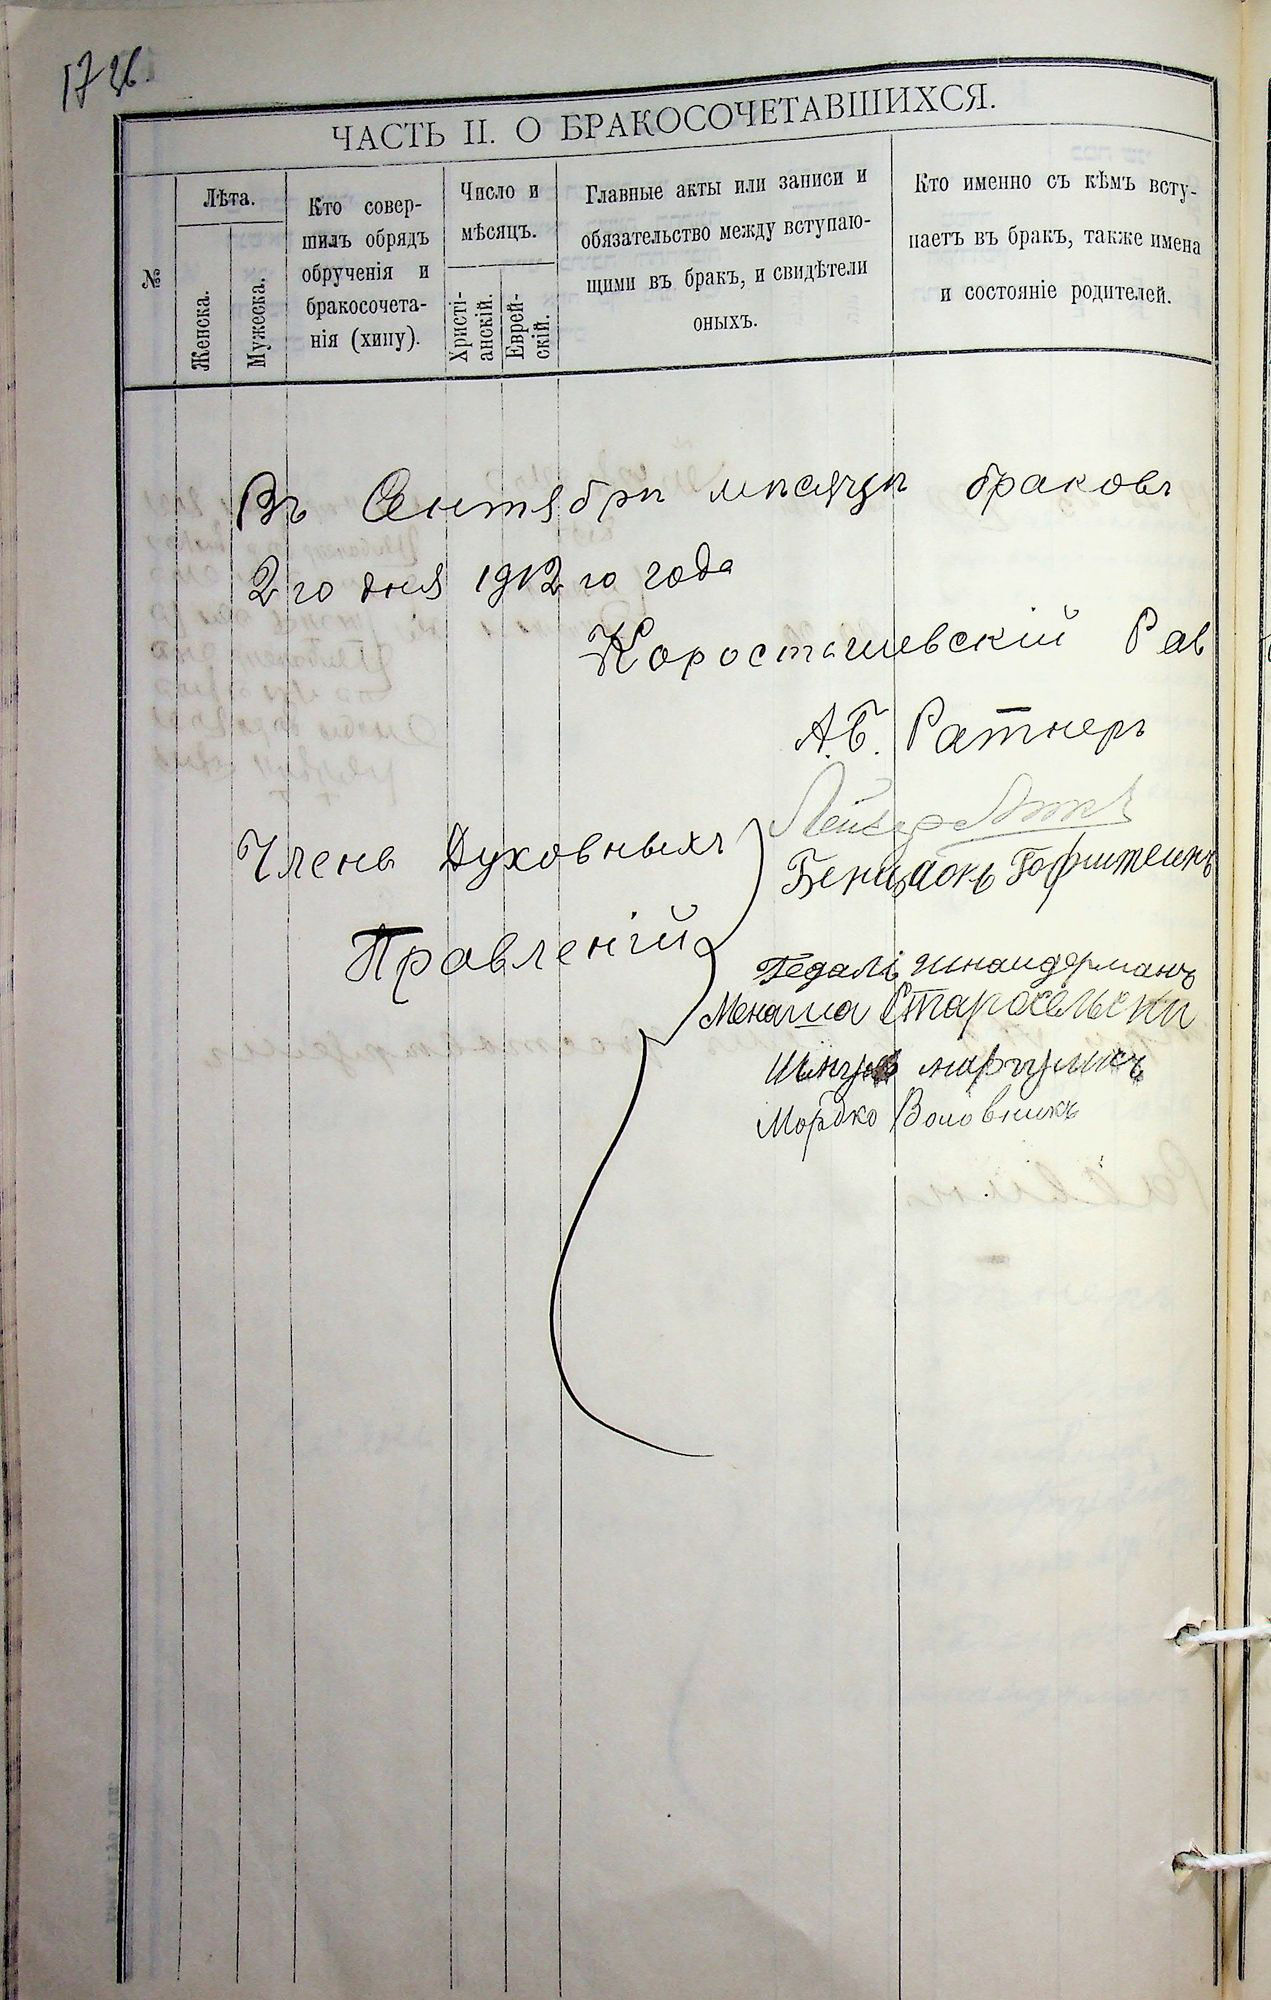 ЧАСТЬ II. О БРАКОСОЧЕТАВШИХСЯ.
№
Лѣта.
Женска.
Мужеска.
Кто совер-
шилъ обрядъ
обрученія и
бракосочета-
нія (хипу).
Число и
мѣсяцъ.
Христі-
анскій.
Еврей-
скій.
Главные акты или записи и
обязательство между вступаю-
щими въ бракъ, и свидѣтели
оныхъ.
Кто именно съ кѣмъ всту-
паетъ въ бракъ, также имена
и состояніе родителей.
Въ Сентябрѣ мѣсяцѣ браковъ
2го дня 1912го года
Коростышевскій Рав
А.Б. Ратнеръ
Члены Духовныхъ
Правленій
Лейзер
Бенціонъ Гофштеинъ
Гедалі Шнаидерманъ
Менаша Старосельски
маргулисъ
Мордко Воловникъ